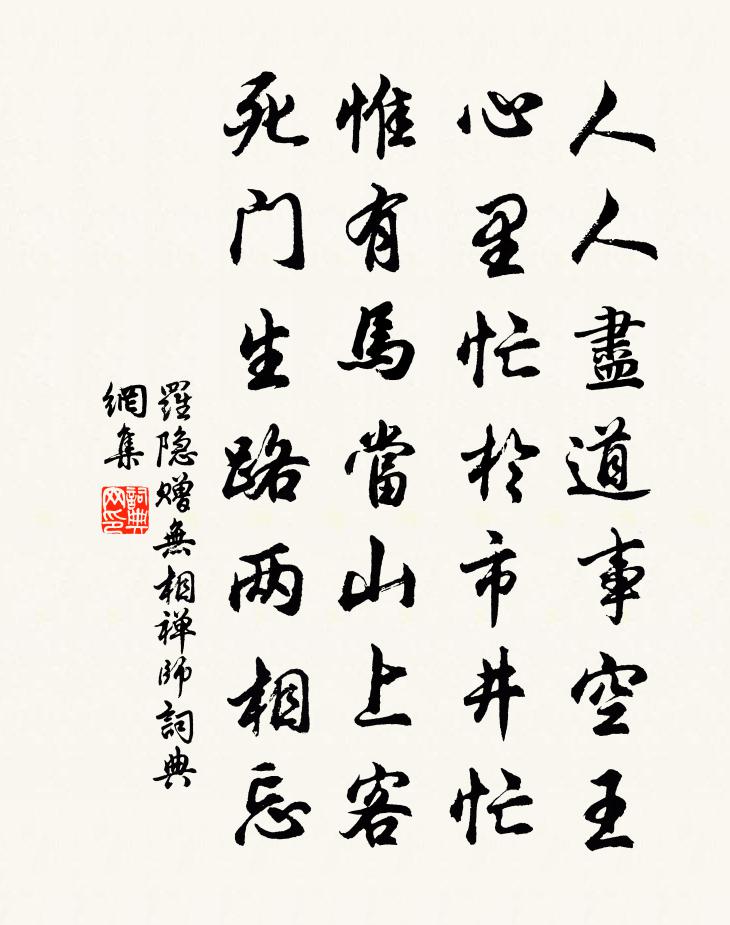 人人盡道事空王
心里忙於市井忙
惟有馬當山上客
死门生路两相忘
羅隐赠無相禅師詞典
網集
詞典
网印